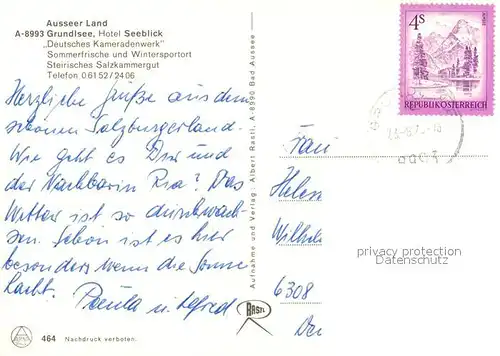 Ausseer Land
A-8993 Grundlsee, Hotel Seeblick
„Deutsches Kameradenwerk"
Sommerfrische und Wintersportort
Steirisches Salzkammergut
Telefon 0 61 52 / 24 06
Herzliche Grüße aus dem
schönen Salzburgerland.
Wie geht es Dir und
der Nachbarin Ria? Das
Wetter ist so durchwach-
sen. Schön ist es hier
besonders wenn die Sonne
lacht. Paula u.
464 Nachdruck verboten.
Aufnahme und Verlag: Albert Rastl, A-8990 Bad Aussee
RASTL
4S
REPUBLIK ÖSTERREICH
Frau
Helene
Wilhelm
6308
privacy protection
Datenschutz